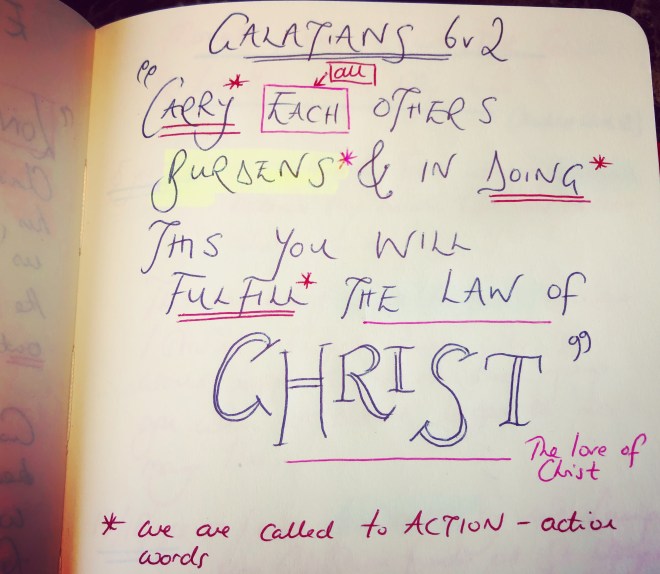 GALATIANS 6v2
all
"CARRY* EACH OTHERS
BURDENS* & IN DOING*
THIS YOU WILL
FULFILL* THE LAW OF
CHRIST"
The love of
Christ
* we are called to ACTION - action
words